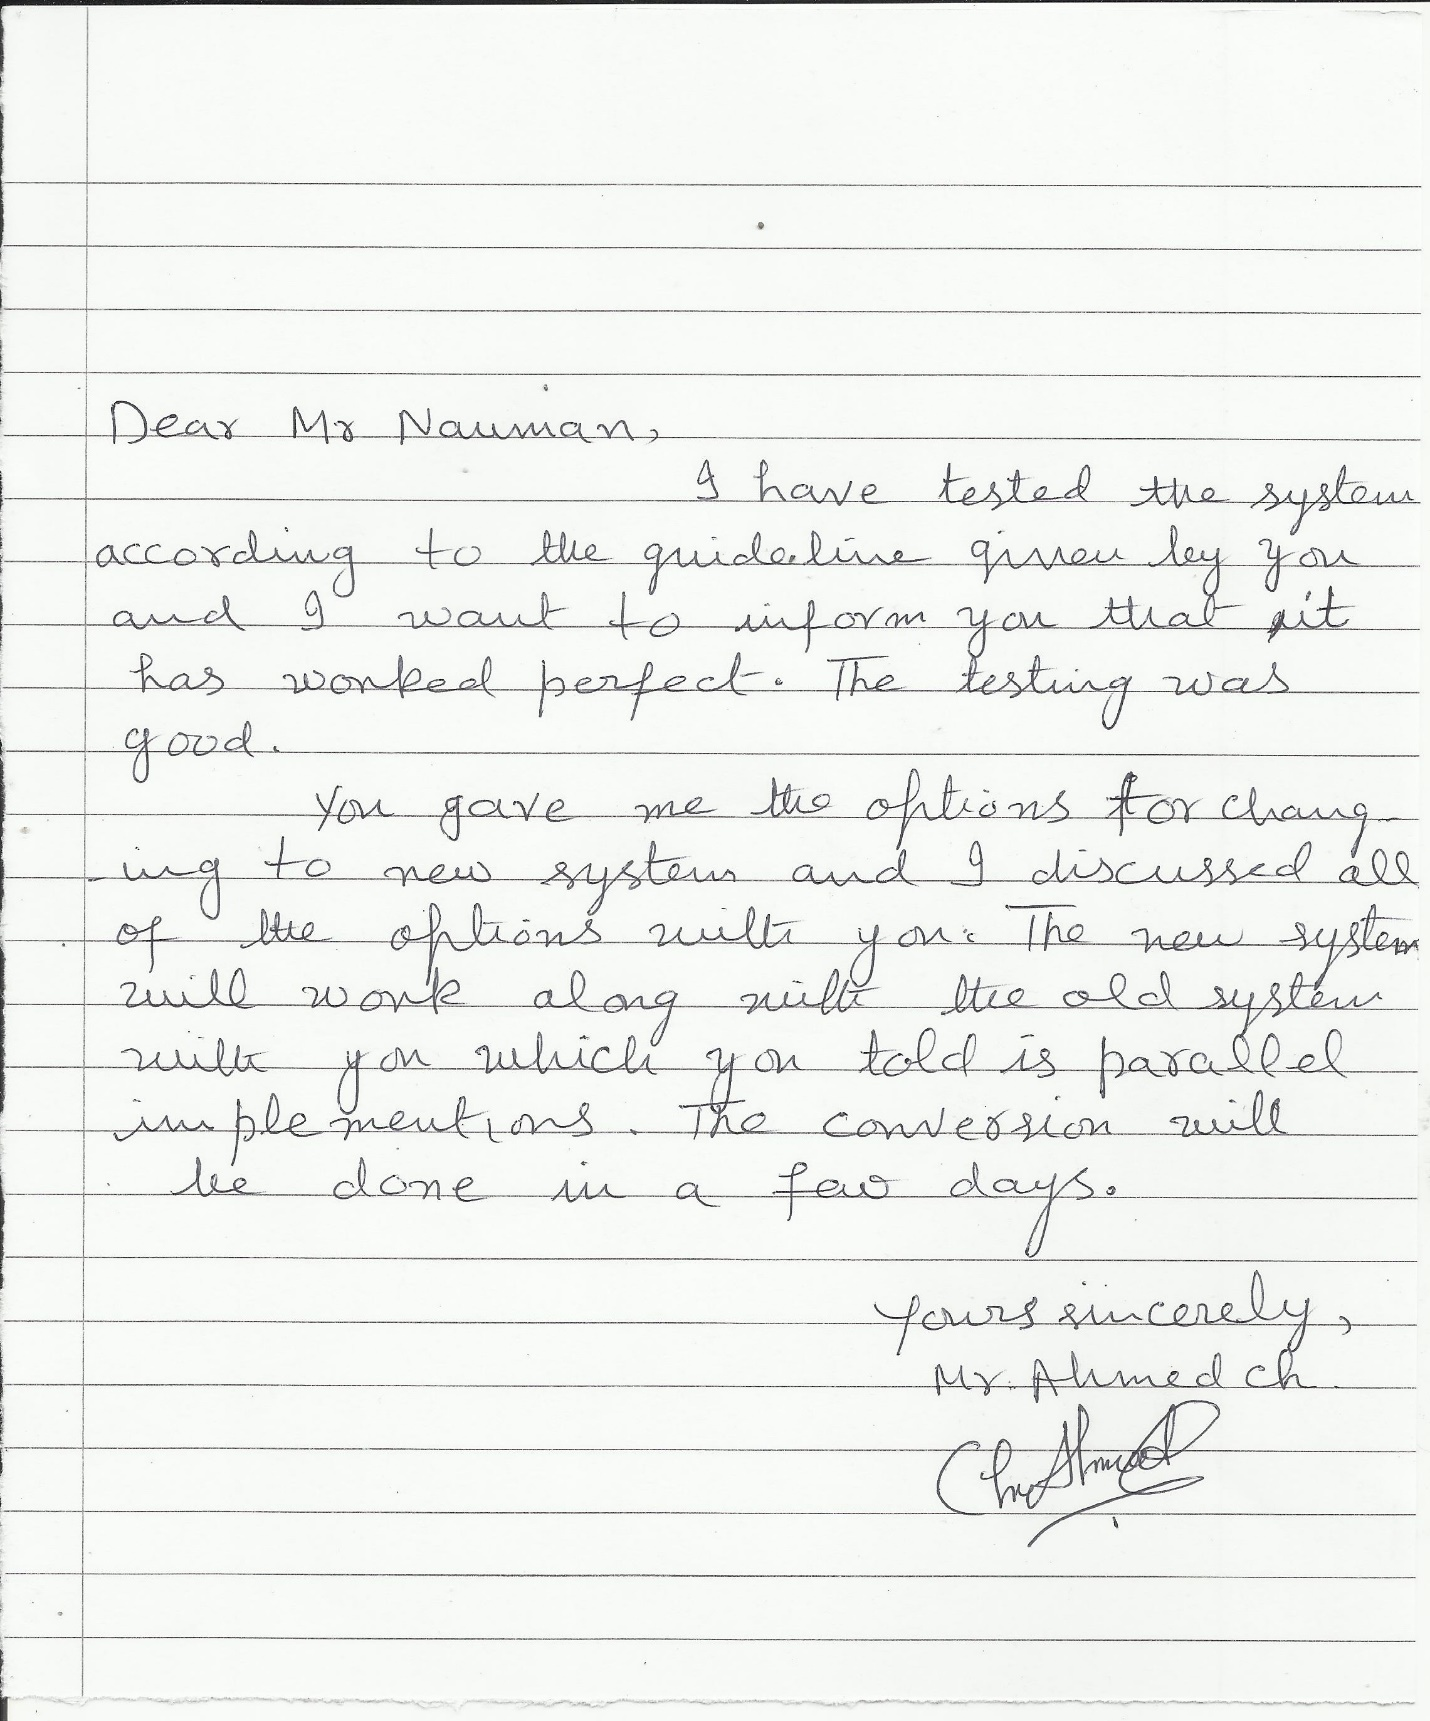 Dear Mr Nauman,
I have tested the system
according to the guideline given by you
and I want to inform you that it
has worked perfect. The testing was
good.
You gave me the options for chang-
-ing to new system and I discussed all
of the options with you. The new system
will work along with the old system
with you which you told is parallel
implementions. The conversion will
be done in a few days.
Yours sincerely,
Mr. Ahmed ch
Ch Ahmed